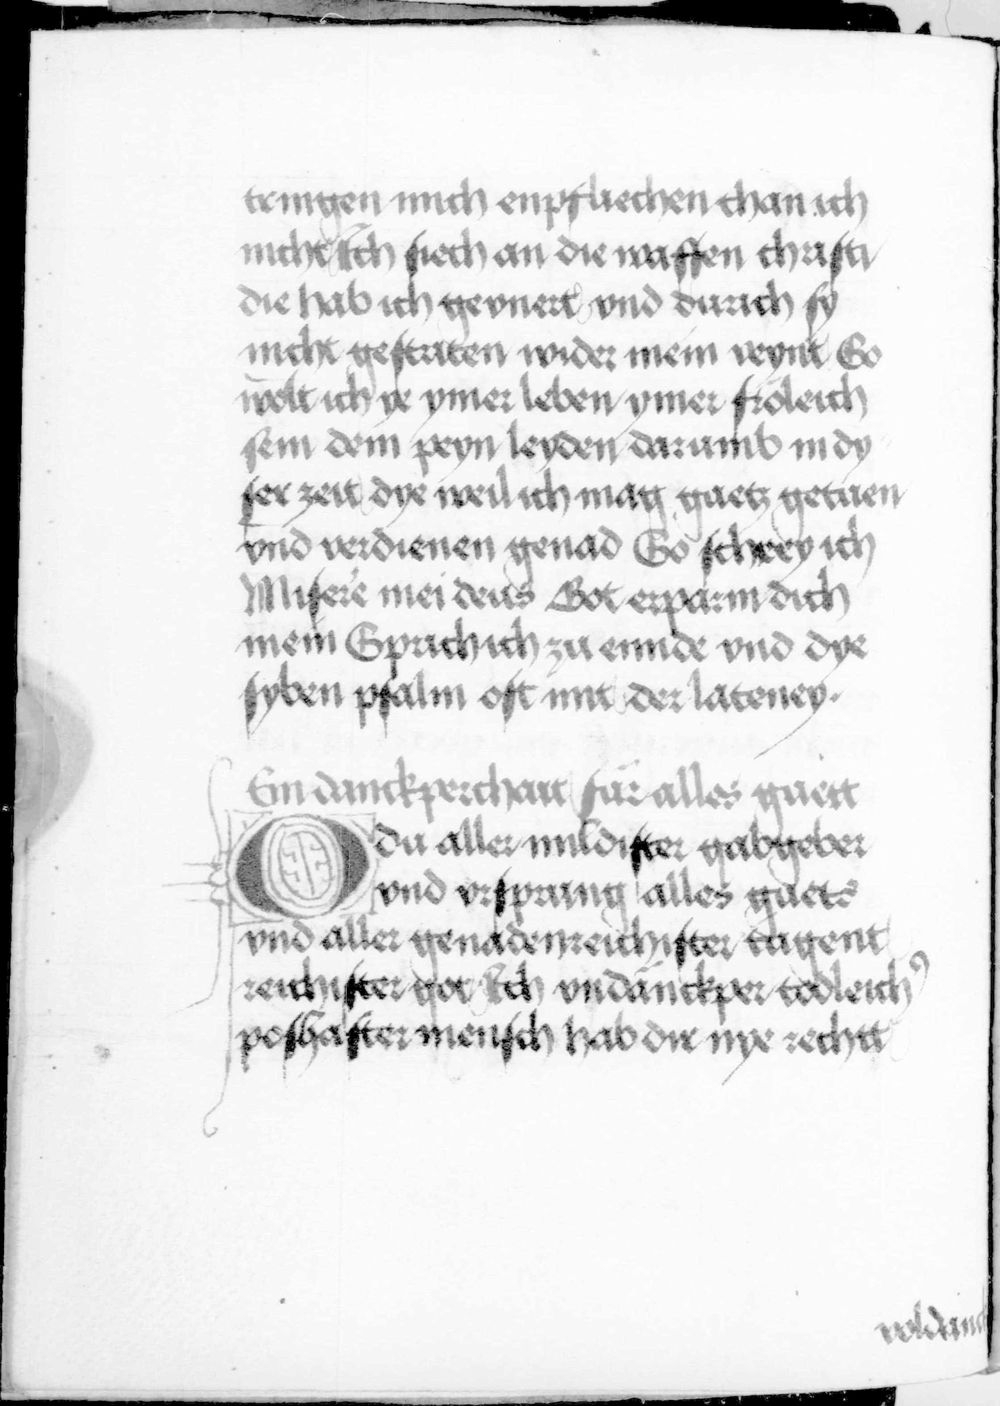 tringen mich enpfliechen chan ich
nicht Ich siech an die waffen christi
die hab ich geunert vnd durich sy
nicht gestriten wider mein veynt So
wolt ich ye ymer leben ymer fröleich
sein dein peyn leyden darumb in dy
ser zeit dye weil ich mag guetz getuen
vnd verdienen genad So schrey ich
Misere mei deus Got erparm dich
mein Sprich ich zu ennde vnd dye
syben psalm oft mit der lateney.
Ein danckperchait für alles guett
O du aller mildister gabgeber
vnd vrsprung alles guets
vnd aller genadenreichister tugent
reichister got Ich vndanckper todleich
poshafter mensch hab dir nye rechtt
voldanck